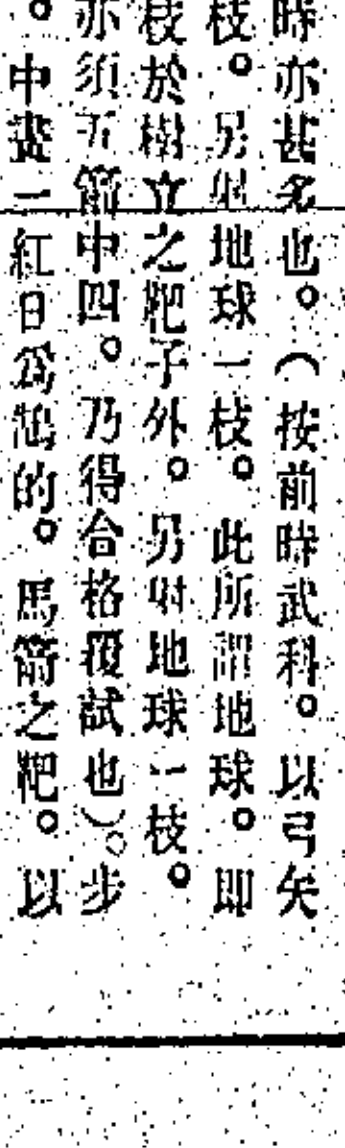 時亦甚多也。（按前時武科。以弓矢
枝。另射地球一枝。此所謂地球。即
枝於樹立之靶子外。另射地球一枝。
亦須五箭中四。乃得合格覆試也）。步
。中畫一紅日爲鵠的。馬箭之靶。以